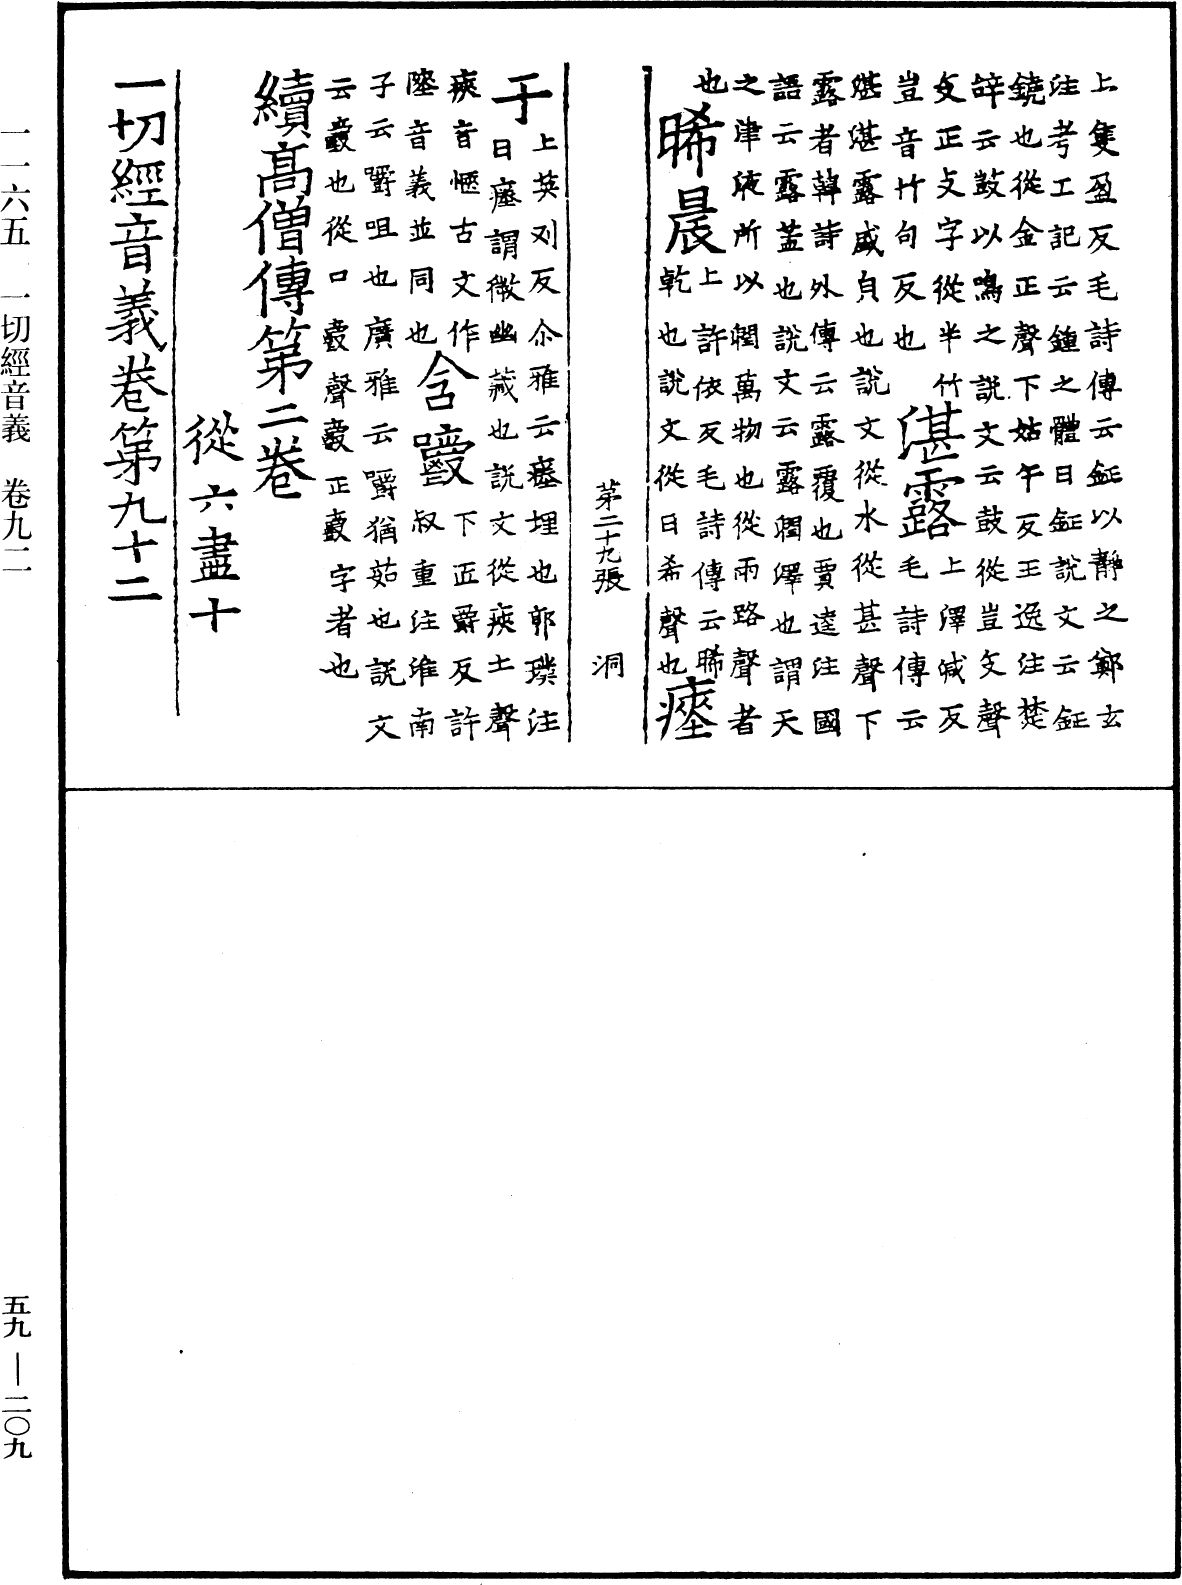 上隻盈反毛詩傳云鉦以靜之鄭玄
注考工記云鍾之體曰鉦說文云鉦
鐃也從金正聲下姑午反王逸注楚
辝云鼓以鳴之說文云鼓從豈攴聲
攴正攴字從半竹
豈音竹句反也
湛露
上澤減反
毛詩傳云
湛湛露盛皃也說文從水從甚聲下
露者韓詩外傳云露覆也賈逵注國
語云露盖也說文云露潤澤也謂天
之津液所以潤萬物也從雨路聲者
也
晞晨
上許依反毛詩傳云晞
乾也說文從日希聲也
瘞
第二十九張 洞
于
上英刈反尒雅云瘞埋也郭璞注
曰瘞謂微幽藏也說文從疾土聲
疾音愜古文作
瘞音義並同也
含嚼
下匠爵反許
叔重注淮南
子云嚼咀也廣雅云嚼猶茹也說文
云也從口聲正字者也
續高僧傳第二卷
從六盡十
一切經音義卷第九十二
一一六五 一切經音義 卷九二
五九—二〇九